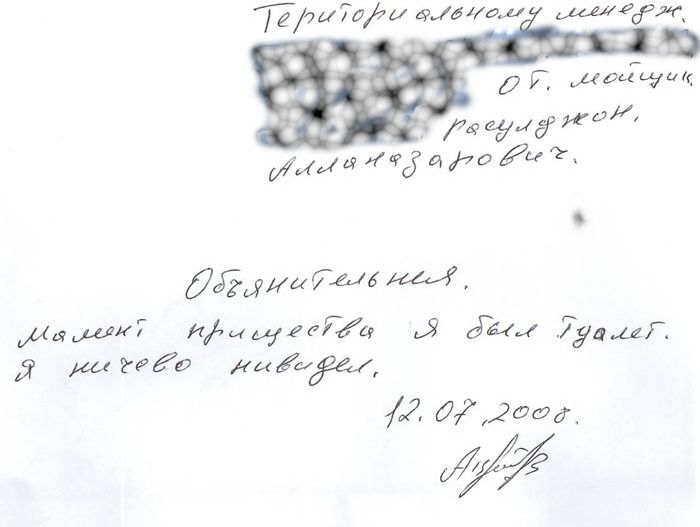 Териториальному менедж.
от. мойщик
расулджон.
Алланазарович.
Объянительния.
Мамент прищества я был туалет.
я ничево нивидел.
12.07.2008.